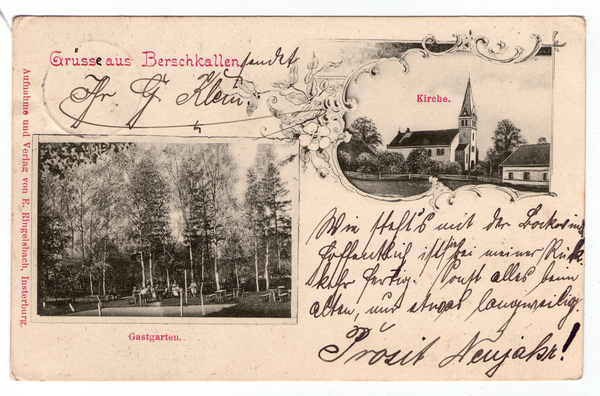 Grüsse aus Berschkallen sendet
Ihr G Klein.
Kirche.
Aufnahme und Verlag von E. Ringelsbach, Insterburg.
Wie steht's mit der
Hoffentlich ist sie bei meiner Rück
kehr fertig. Sonst alles beim
alten, nur etwas langweilig.
Prosit Neujahr!
Gastgarten.